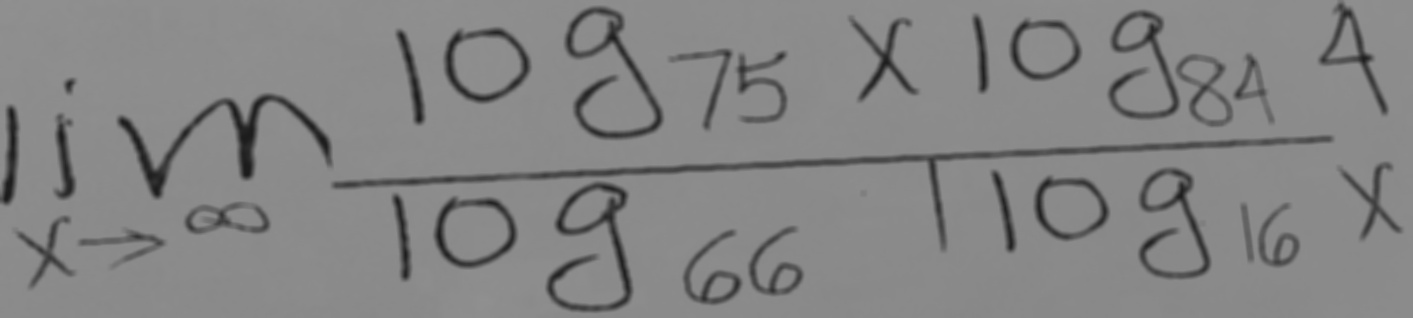 lim x→∞ \frac{log_{75} x log_{84} 4}{log_{66} 1 log_{16} x}